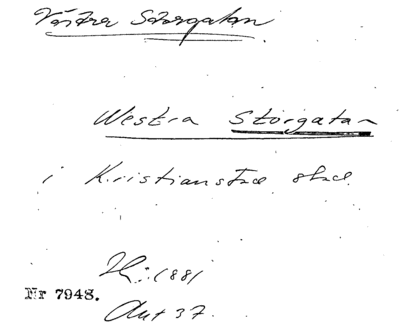 Västra Storgatan.
Westra Storgatan
i Kristianstad stad
Hi: 1881
Nr 7948.
Ant 37.